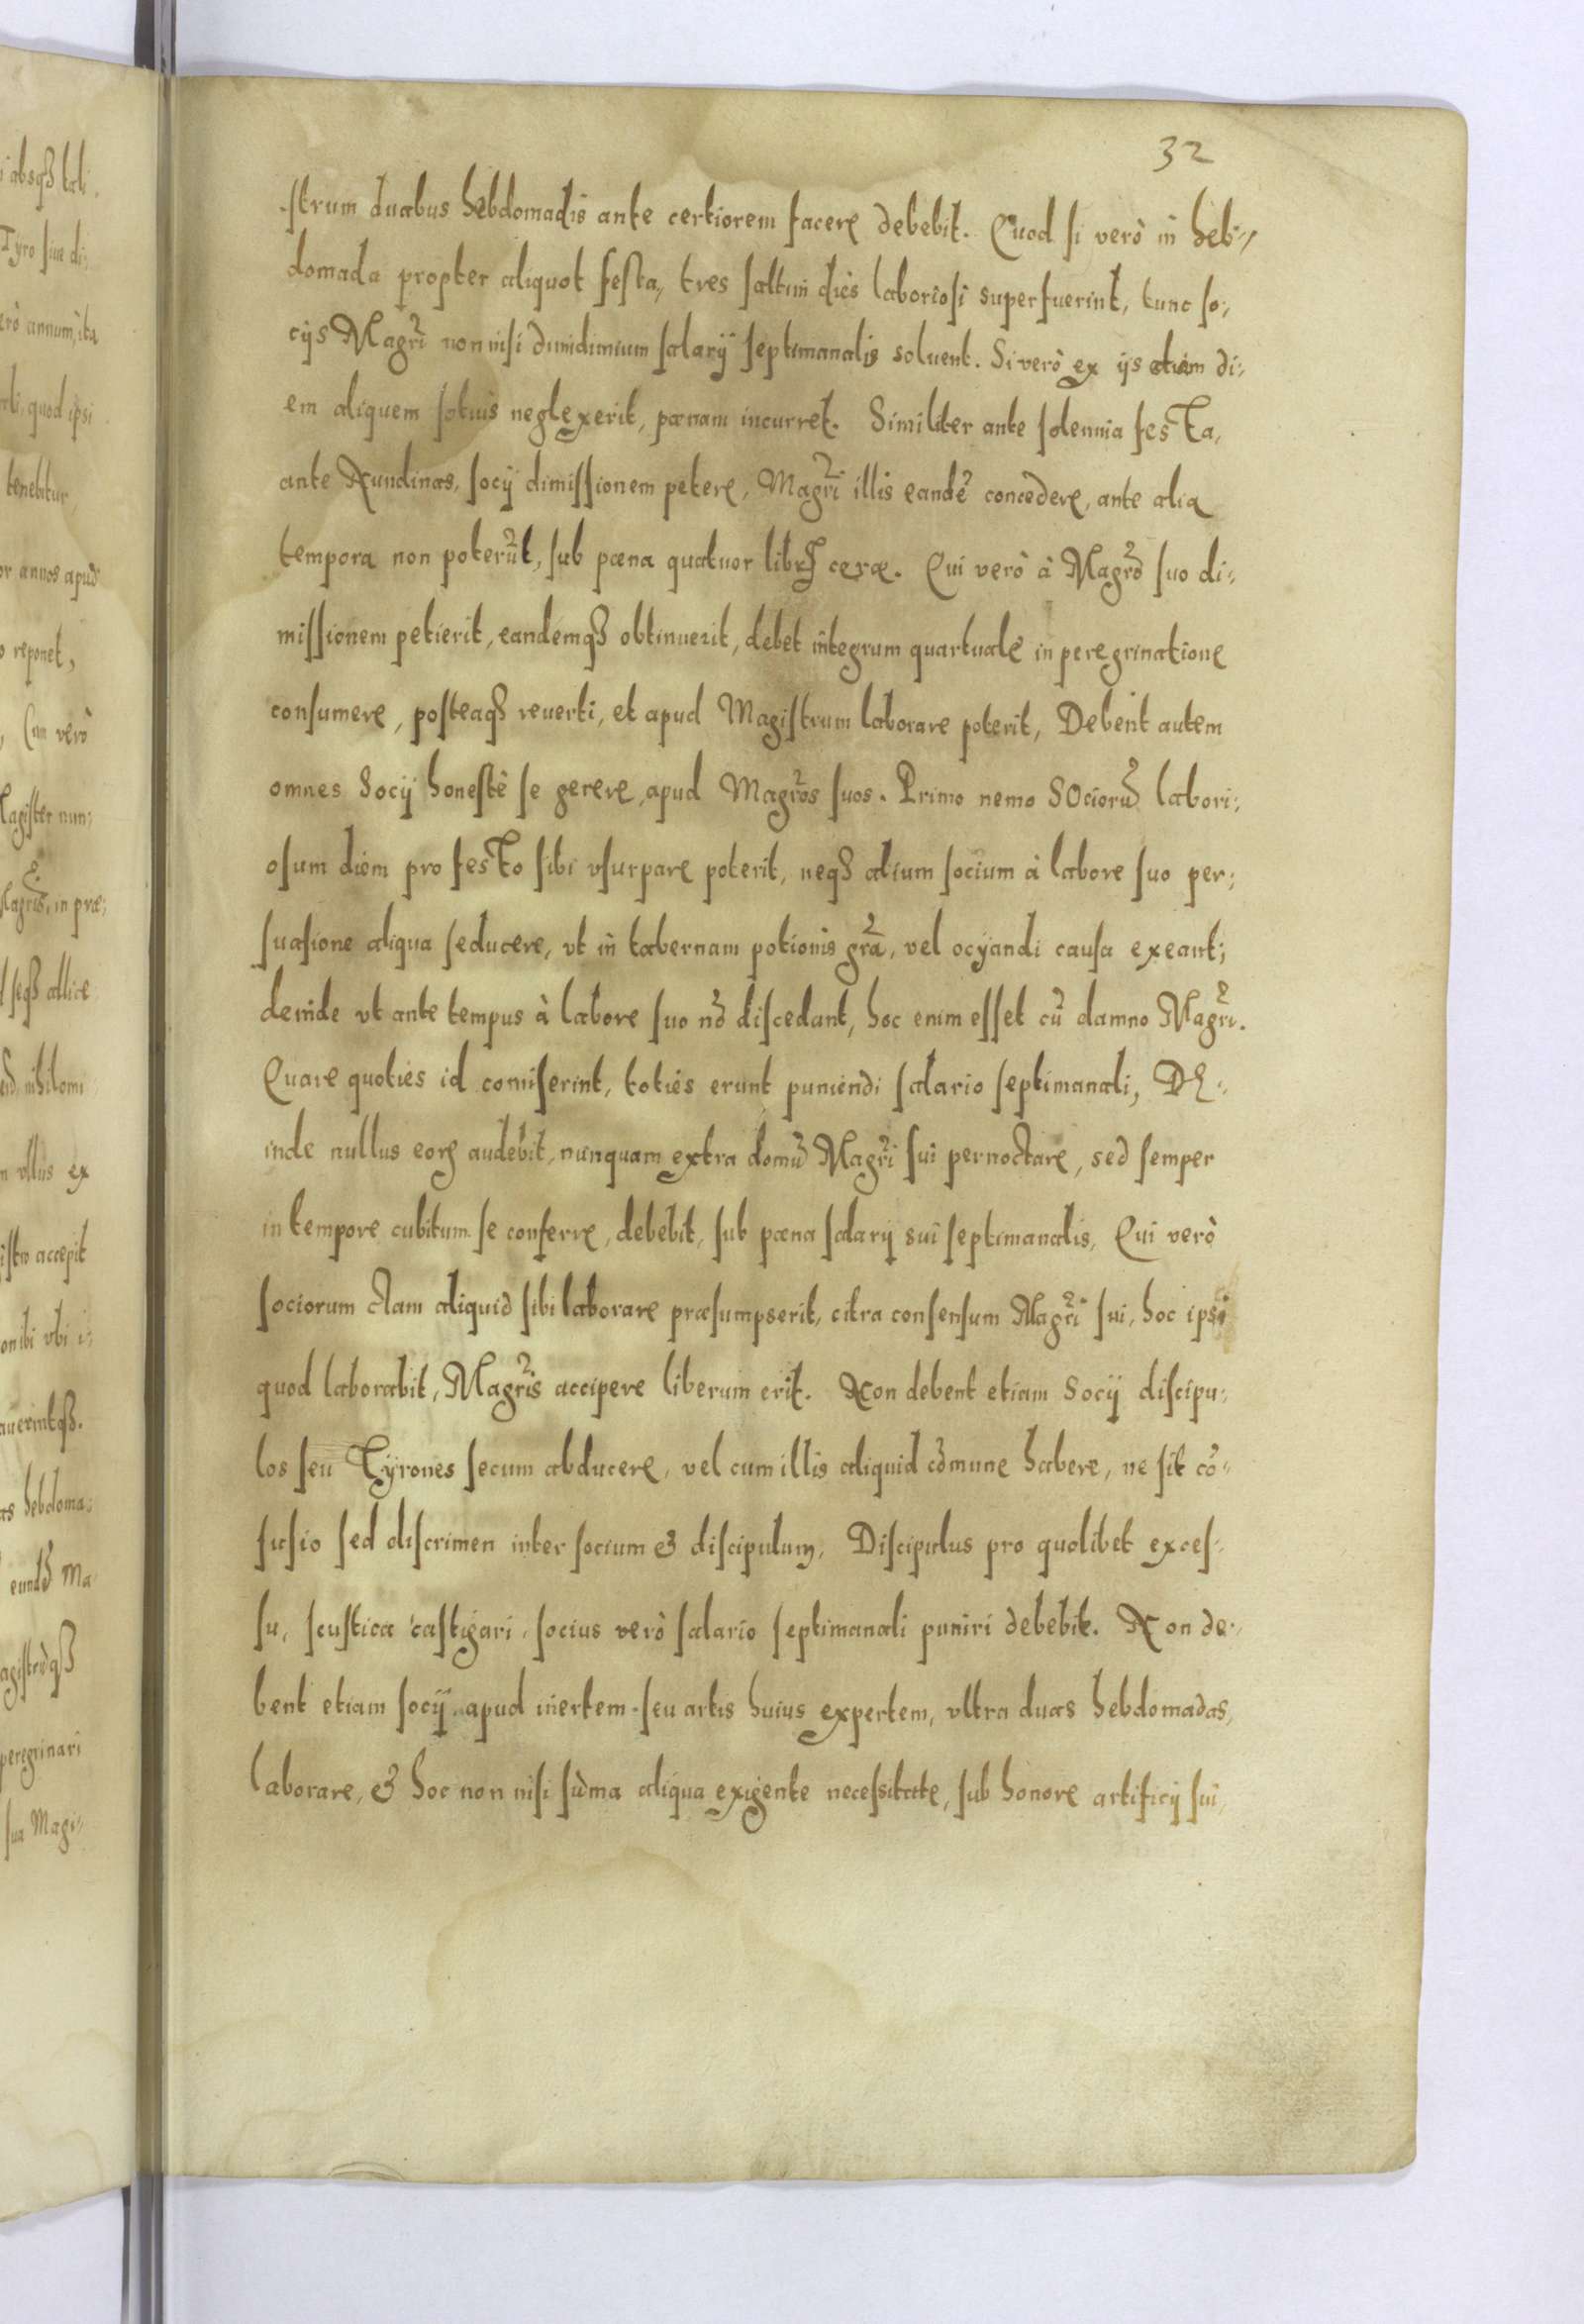 32
strum duabus hebdomadis ante certiorem facere debebit. Quod si verò in heb⸗
domada propter aliquot festa, tres saltim dies laboriosi superfuerint, tunc so⸗
cijs Magrĩ non nisi dimidimium salarÿ septimanalis soluent. Si verò ex ijs etiam di⸗
em aliquem neglexerit, pœnam incurret. Similiter ante solennia festa,
ante Nundinas, socÿ dimissionem petere, Magrĩ illis eandẽ concedere, ante alia
tempora non poterũt, sub pœna quatuor libr. ceræ. Qui verò à Magrõ suo di⸗
missionem petierit, eandemq3 obtinuerit, debet integrum quartuale in peregrinatione
consumere, posteaq3 reuerti, et apud Magistrum laborare poterit, Debent autem
omnes Socÿ honestè se gerere, apud Magrõs suos. Primo nemo SOciorũ labori⸗
osum diem pro festo sibi vsurpare poterit, neq3 alium socium à labore suo per⸗
suasione aliqua seducere, vt in tabernam potionis grã, vel ocÿandi causa exeant;
deinde vt ante tempus à labore suo nõ discedant, hoc enim esset cũ damno Magrĩ.
Quare quoties id comiserint, toties erunt puniendi salario septimanali, De⸗
inde nullus eorꝝ audebit, nunquam extra domũ Magrĩ sui pernoctare, sed semper
in tempore cubitum se conferre, debebit, sub pœna salarÿ sui septimanalis, Qui verò
sociorum clam aliquid sibi laborare præsumpserit, citra consensum Magrĩ sui, hoc ipsi
quod laborabit, Magrĩs accipere liberum erit. Non debent etiam Socÿ discipu⸗
los seu Tÿrones secum abducere, vel cum illis aliquid cõmune habere, ne sit cõ⸗
fusio sed discrimen inter socium & discipulum, Discipulus pro quolibet exces⸗
su, scutica castigari, socius verò salario septimanali puniri debebit. Non de⸗
bent etiam socÿ apud inertem seu artis huius expertem, vltra duas hebdomadas,
laborare, & hoc non nisi sũma aliqua exigente necessitate, sub honore artificÿ sui,